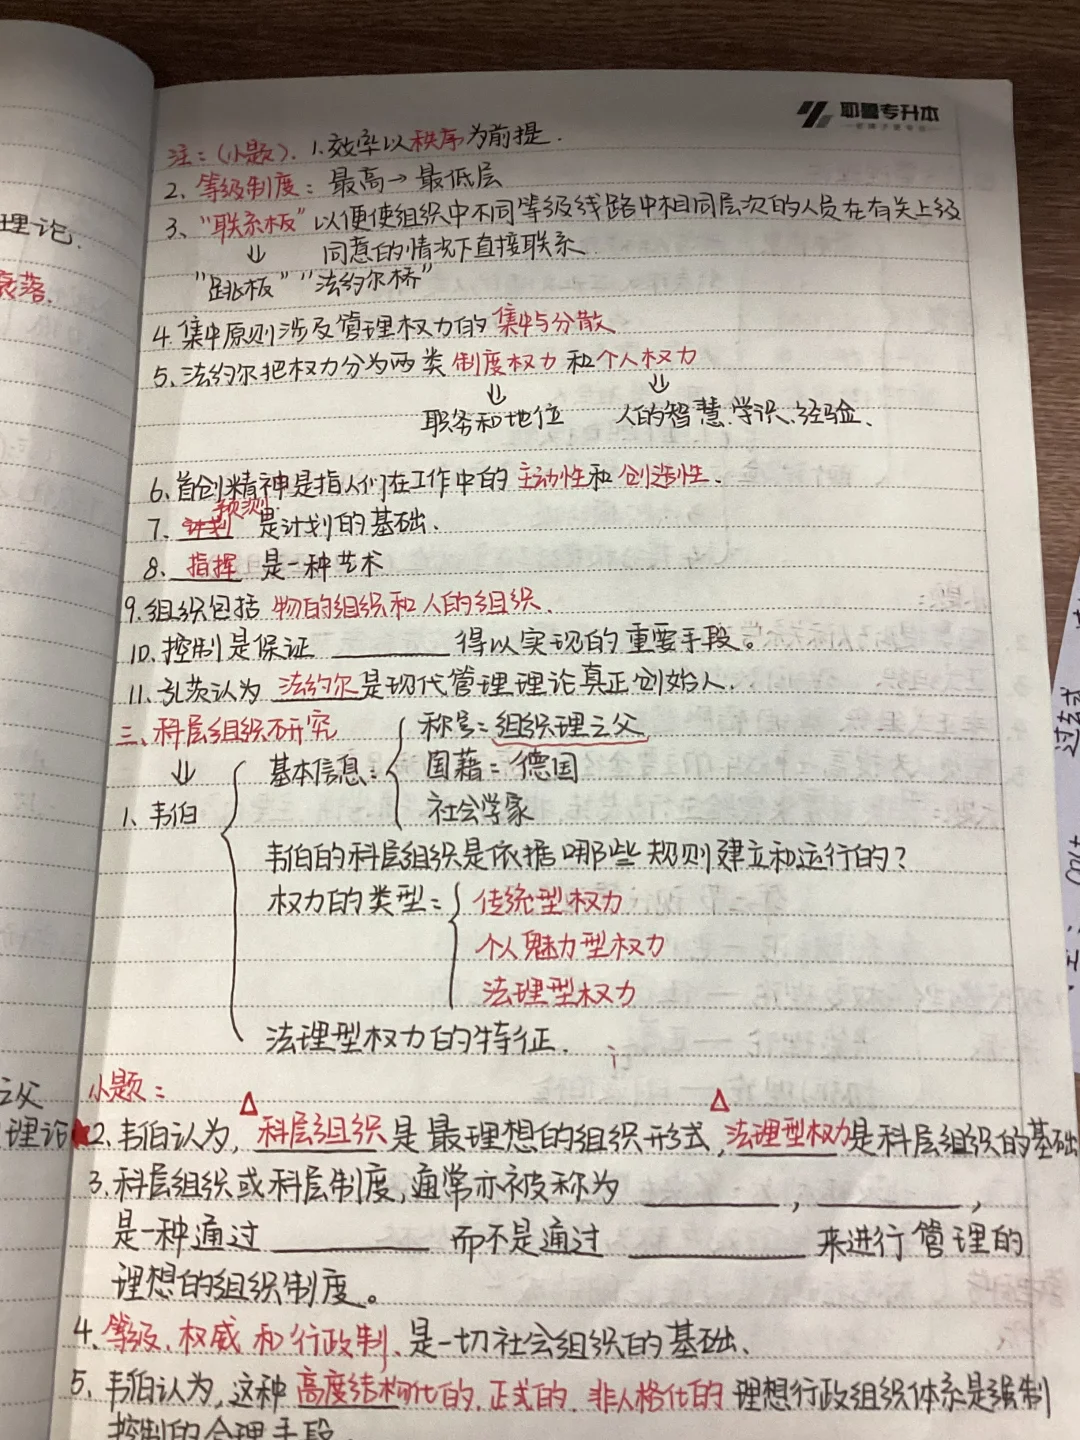 耶鲁专升本
理论.
衰落.
注:(小题). 1.效率以秩序为前提.
2. 等级制度: 最高→最低层
3、"联系板"以便使组织中不同等级线路中相同层次的人员在有关上级
↓ 同意的情况下直接联系.
"跳板" "法约尔桥"
4.集中原则涉及管理权力的集中与分散
5、法约尔把权力分为两类制度权力和个人权力
↓ ↓
职务和地位 人的智慧.学识.经验、
6、首创精神是指人们在工作中的主动性和创造性.
预测
7. 计划 是计划的基础.
8、指挥 是一种艺术
9.组织包括 物的组织和人的组织.
10.控制是保证 ______ 得以实现的重要手段。
11.孔茨认为 法约尔是现代管理理论真正创始人.
三、科层组织研究 称号:组织理之父
↓ 基本信息: 国籍:德国
1、韦伯 社会学家
韦伯的科层组织是依据哪些规则建立和运行的?
权力的类型: 传统型权力
个人魅力型权力
法理型权力
法理型权力的特征.
小题:
之父
理论
△ △
2.韦伯认为, 科层组织 是最理想的组织形式,法理型权力是科层组织的基础
3.科层组织或科层制度,通常亦被称为 ______ , ______ ,
是一种通过 ______ 而不是通过 ______ 来进行管理的
理想的组织制度。
4、等级、权威和行政制、是一切社会组织的基础、
5、韦伯认为,这种高度结构化的.正式的.非人格化的理想行政组织体系是强制
控制的合理手段.